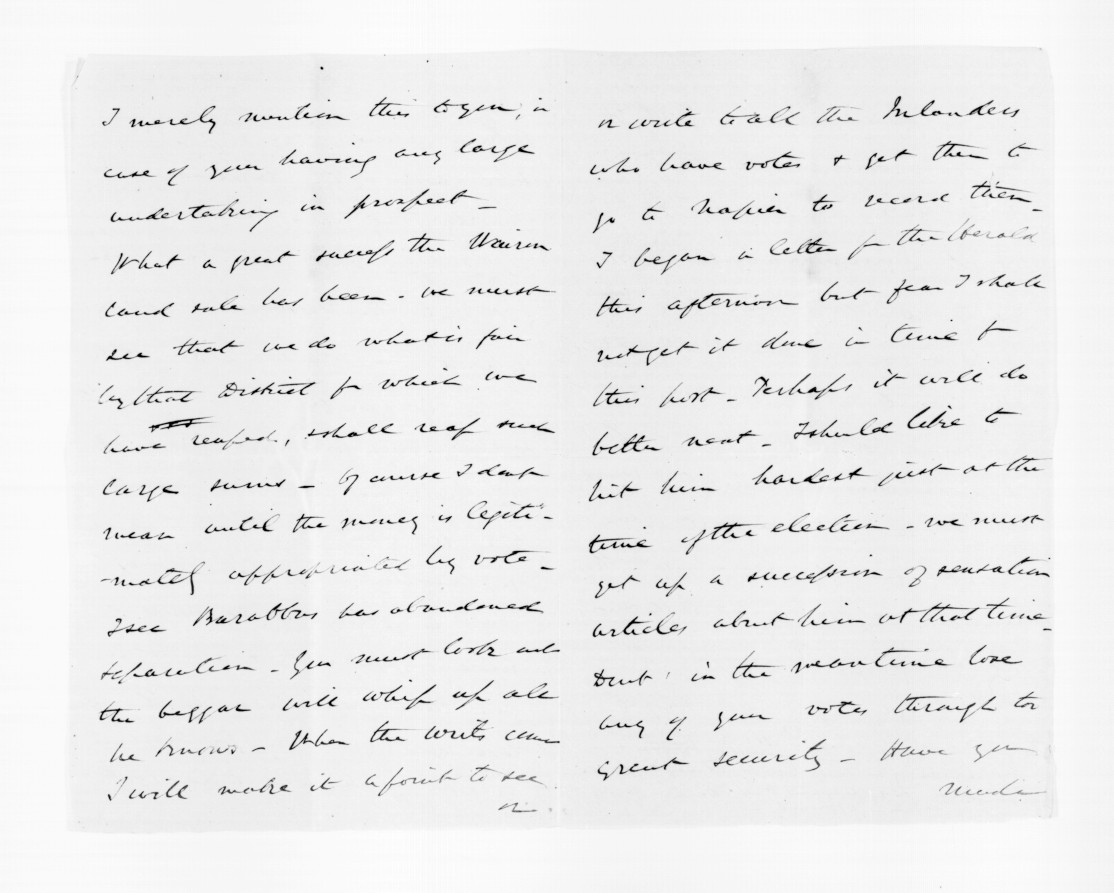 I merely mention this to you, in
case of your having any large
undertaking in prospect _
What a great success the Wairoa
land sale has been - we must
see that we do what is fair
by that District for which we
have reaped, & shall reap such
large sums _ Of course I dont
mean until the money is legiti-
-mately appropriated by vote _
I see Barabbas has abandoned
separation - You must look out
the beggar will whip up all
he knows - When the writs come
I will make it a point to see
or
or write to all the Inlanders
who have votes & get them to
go to Napier to record them _
I began a letter for the Herald
this afternoon but fear I shall
not get it done in time for
this post _ Perhaps it will do
better next _ I should like to
hit him hardest just at the
time of the election - we must
get up a succession of sensation
articles about him at that time _
Dont in the meantime lose
any of your votes through too
great security _ Have you
made